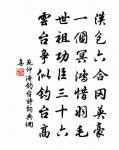 漢包六合网英豪
一個冥鴻惜羽毛
世祖功臣三十六
雲台争似釣台高
范仲淹釣台詩詞典網